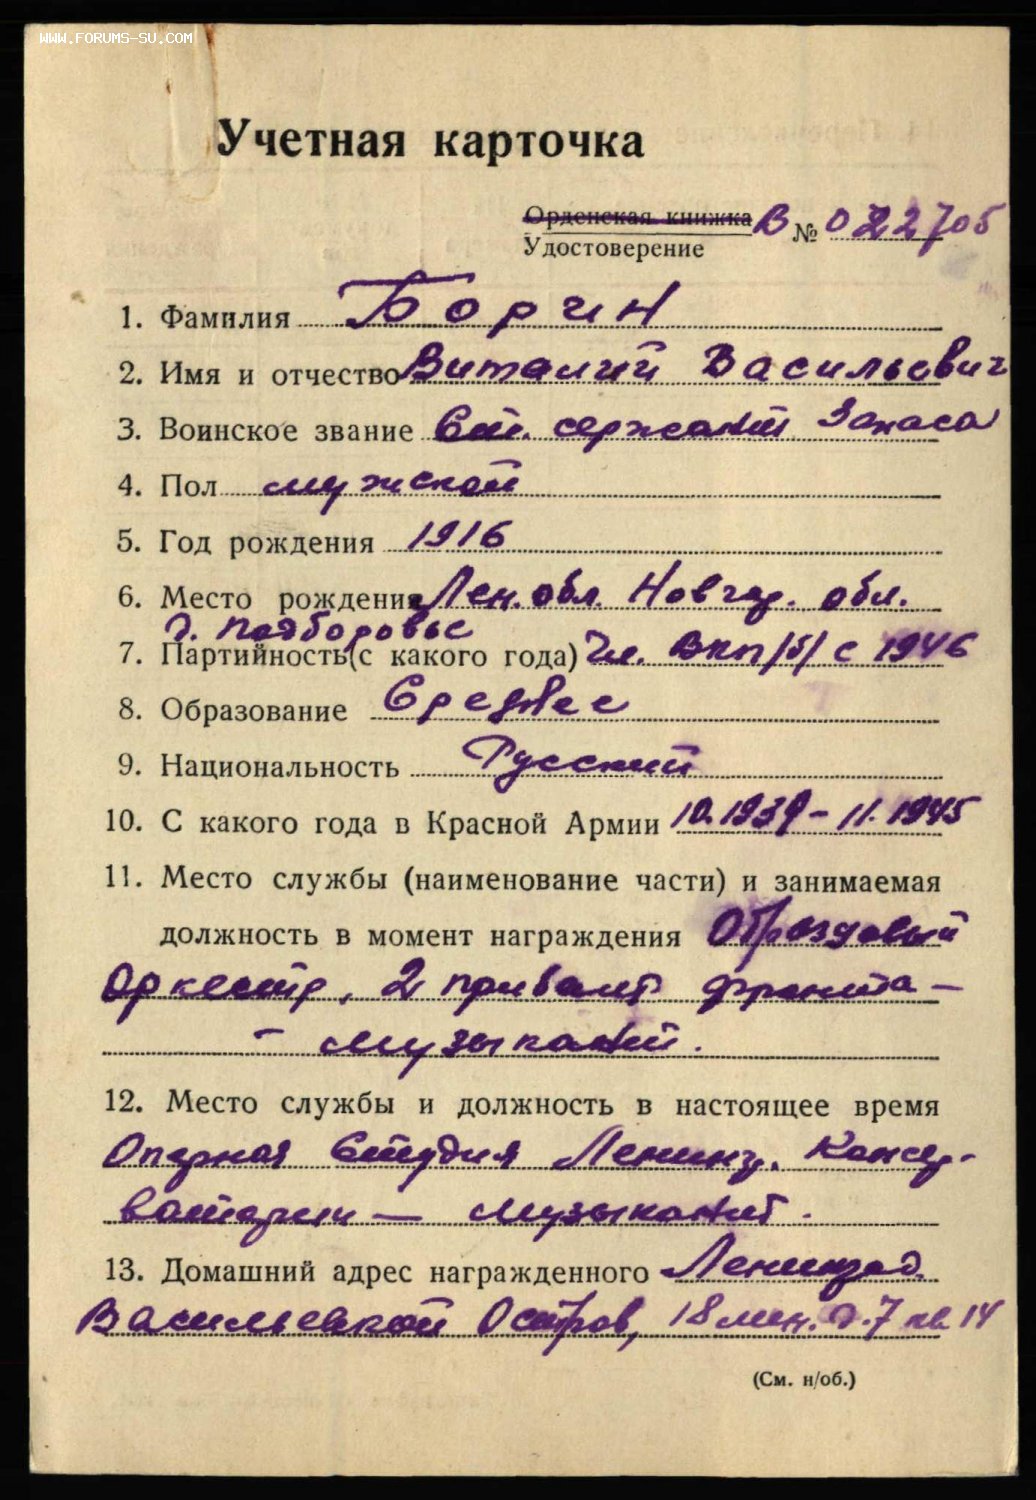 WWW.FORUMS-SU.COM
Учетная карточка
Орденская книжка В № 022705
Удостоверение
1. Фамилия Борчин
2. Имя и отчество Виталий Васильевич
3. Воинское звание Ст. сержант запаса
4. Пол мужской
5. Год рождения 1916
6. Место рождения Лен. обл. Новгор. обл.
д. Подборовье
7. Партийность (с какого года) Чл. ВКП/б/ с 1946
8. Образование Среднее
9. Национальность Русский
10. С какого года в Красной Армии 10.1939 - 11.1945
11. Место службы (наименование части) и занимаемая
должность в момент награждения Образцовый
Оркестр, 2 прибалт фронта —
— музыкант.
12. Место службы и должность в настоящее время
Оперная Студия Ленинг. Консер-
ватории — музыкант.
13. Домашний адрес награжденного Ленинград.
Васильевской Остров, 18 лин. д. 7 кв 14
(См. н/об.)